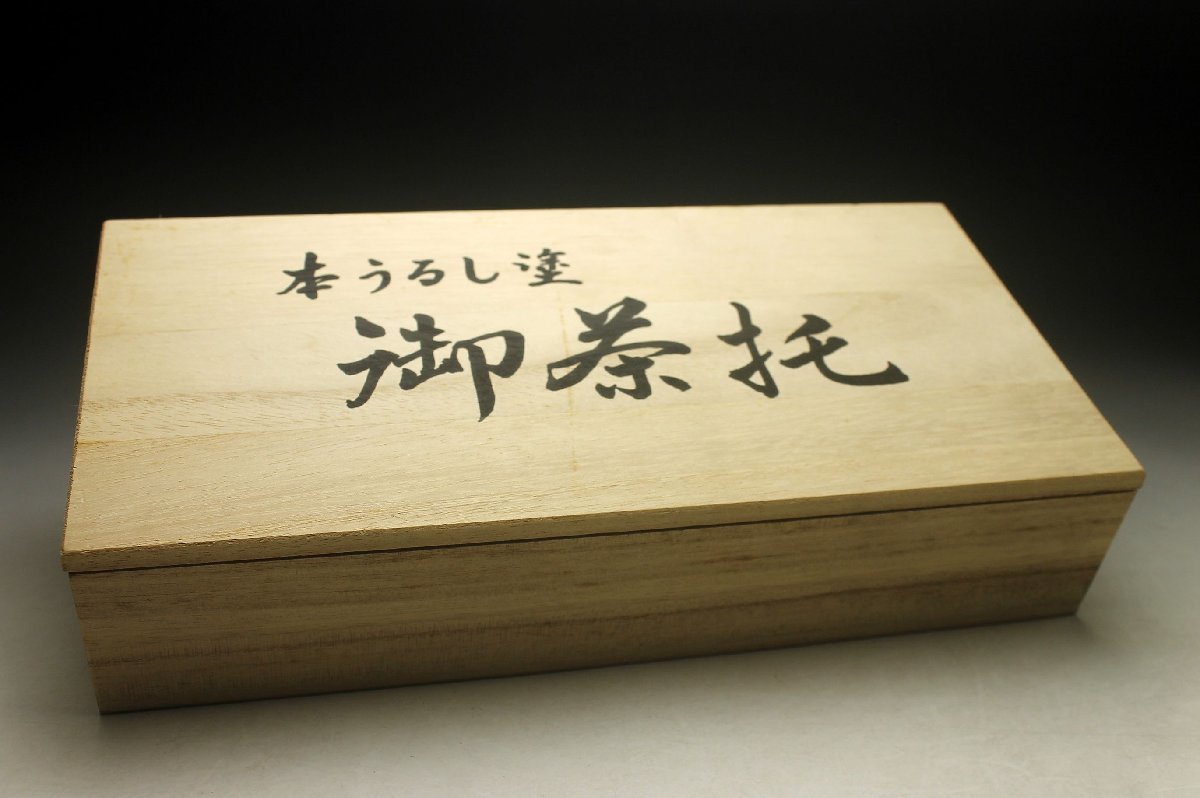 本うるし塗
御茶托